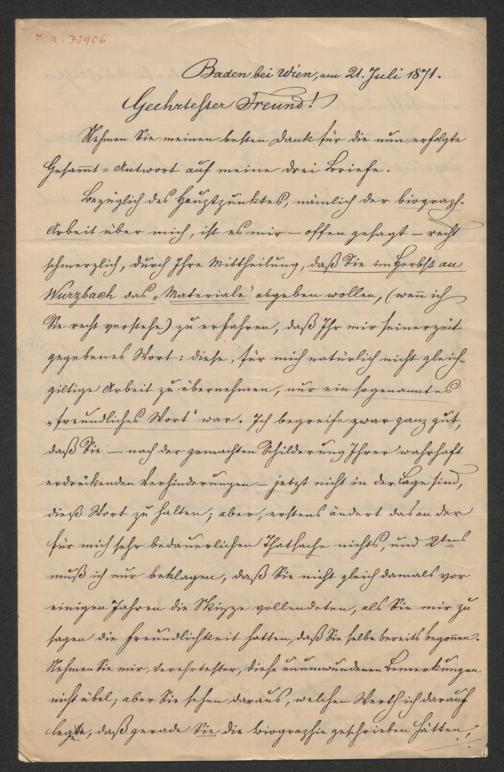 I. N. 73906
Baden bei Wien, am 21. Juli 1871.
Geehrtester Freund!
Nehmen Sie meinen besten Dank für die nun erfolgte
Gesammt-Antwort auf meine drei Briefe.
Bezüglich des Hauptpunktes, nämlich der biograph.
Arbeit über mich, ist es mir – offen gesagt – recht
schmerzlich, durch Ihre Mittheilung, daß Sie im Herbst an
Wurzbach das „Materiale" abgeben wollen, (wenn ich
Sie recht verstehe) zu erfahren, daß Ihr mir seinerzeit
gegebenes Wort: diese, für mich natürlich nicht gleich-
giltige Arbeit zu übernehmen, nur ein sogenanntes
„freundliches Wort" war. Ich begreife zwar ganz gut,
daß Sie – nach der gemachten Schilderung Ihrer wahrhaft
erdrückenden Verhinderungen – jetzt nicht in der Lage sind,
dieß Wort zu halten; aber, erstens ändert das an der
für mich sehr bedauerlichen Thatsache nichts, und 2tens
muß ich nur beklagen, daß Sie nicht gleich damals vor
einigen Jahren die Skizze vollendeten, als Sie mir zu
sagen die Freundlichkeit hatten, daß Sie selbe bereits begonnen.
Nehmen Sie mir, verehrtester, diese unumwundenen Bemerkungen
nicht übel, aber Sie sehen daraus, welchen Werth ich darauf
legte, daß gerade Sie die Biographie geschrieben hätten,